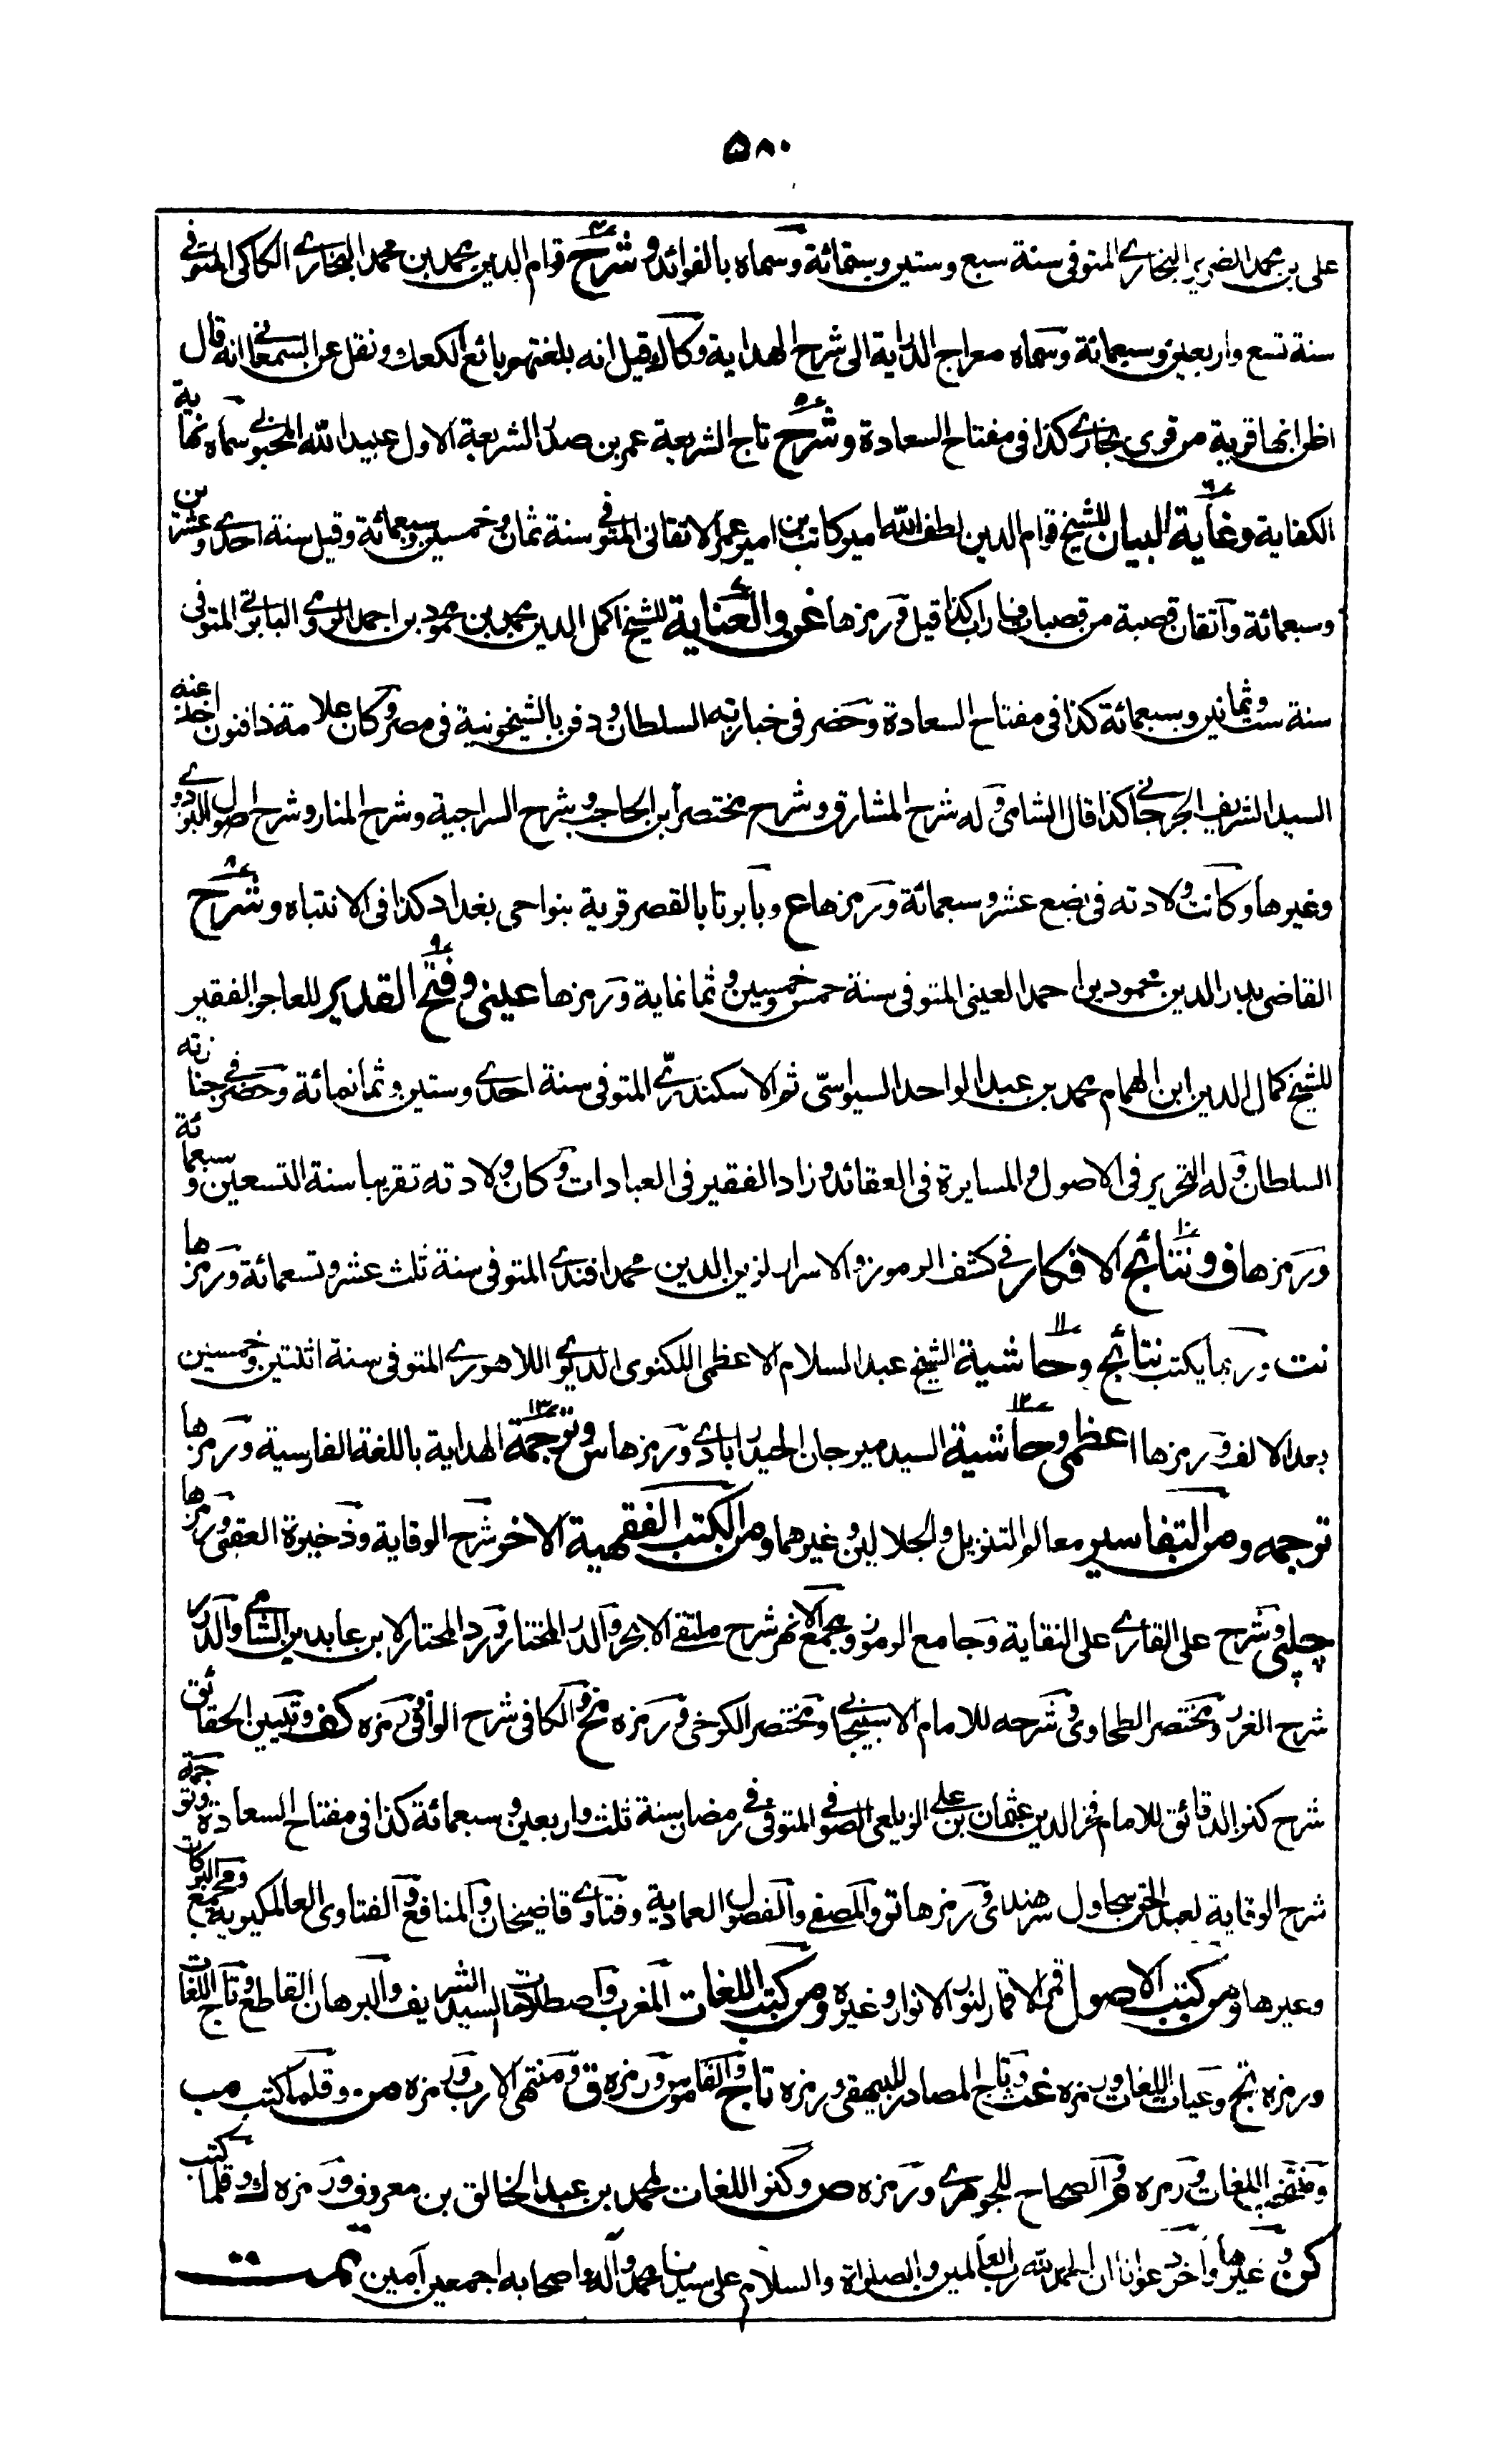 ۵۸۰
علی بن محمد الضریر البخاری المتوفی سنة سبع وستین وستمائة وسماه بالفوائد وشرح قوام الدین محمد بن محمد البخاری الکاکی المتوفی
سنة تسع واربعین وسبعمائة وسماه معراج الدرایة الی شرح الهدایة وکاکی قیل انه بلغتهم بائع الکعک ونقل عن السمعانی انه قال
اظن انها قریة من قری بخاری کذا فی مفتاح السعادة وشرح تاج الشریعة عمر بن صدر الشریعة الاول عبید الله المحبوبی سماه نهایة
الکفایة وغایة البیان للشیخ قوام الدین لطف الله امیر کاتب بن امیر عمر الاتقانی المتوفی سنة ثمان وخمسین وسبعمائة وقیل سنة احدی وعشرین
وسبعمائة واتقان قصبة من قصبات فاراب کذا قیل ورمزها غو والعنایة للشیخ اکمل الدین محمد بن محمود بن احمد الرومی البابرتی المتوفی
سنة ست وثمانین وسبعمائة کذا فی مفتاح السعادة وحضر فی جنازته السلطان ودفن بالشیخونیة فی مصر وکان علامة ذا فنون اخذ عنه
السید الشریف الجرجانی کذا قال الشامی وله شرح المشارق وشرح مختصر ابن الحاجب وشرح السراجیة وشرح المنار وشرح اصول البزدوی
وغیرها وکانت ولادته فی بضع عشر وسبعمائة ورمزها ع وبابرتا بالقصر قریة بنواحی بغداد کذا فی الانتباه وشرح
القاضی بدر الدین محمود بن احمد العینی المتوفی سنة خمس وخمسین وثمانمایة ورمزها عینی وفتح القدیر للعاجز الفقیر
للشیخ کمال الدین ابن الهمام محمد بن عبد الواحد السیواسی ثم الاسکندری المتوفی سنة احدی وستین وثمانمائة وحضر فی جنازته
السلطان وله التحریر فی الاصول والمسایرة فی العقائد وزاد الفقیر فی العبادات وکان ولادته تقریبا سنة التسعین وسبعمائة
ورمزها ف ونتائج الافکار فی کشف الرموز والاسرار لزین الدین محمد افندی المتوفی سنة ثلث عشر وتسعمائة ورمزها
نت وربما یکتب نتائج وحاشیة الشیخ عبد السلام الاعظمی اللکنوی الدیوی اللاهوری المتوفی سنة اثنتین وخمسین
بعد الالف ورمزها اعظمی وحاشیة السید میر جان الحیدرابادی ورمزها س وترجمة الهدایة باللغة الفارسیة ورمزها
ترجمه ومن التفاسیر معالم التنزیل والجلالین وغیرهما ومن الکتب الفقهیة الاخر شرح الوقایة وذخیرة العقبی ورمزها
چلپی وشرح علی القاری علی النقایة وجامع الرموز ومجمع الانهر شرح ملتقی الابحر والدر المختار ورد المحتار لابن عابدین الشامی والدرر
شرح الغرر ومختصر الطحاوی وشرحه للامام الاسبیجابی ومختصر الکرخی ورمزه مخ والکافی شرح الوافی ورمزه کف وتبیین الحقائق
شرح کنز الدقائق للامام فخر الدین عثمان بن علی الزیلعی الصوفی المتوفی فی رمضان سنة ثلث واربعین وسبعمائة کذا فی مفتاح السعادة وترجمة
شرح الوقایة لعبد الحق سجاول سرهندی ورمزها تو والمصفی والفصول العمادیة وفتاوی قاضیخان والمنافع والفتاوی العالمکیریة ومجمع البرکات
وغیرها ومن کتب الاصول قمر الاقمار لنور الانوار وغیره ومن کتب اللغات المغرب واصطلاحات السید الشریف والبرهان القاطع وتاج اللغات
ورمزه تج وغیاث اللغات ورمزه غث وتاج المصادر للبیهقی ورمزه تاج والقاموس ورمزه ق ومنتهی الارب ورمزه من وقلما اکتب مب
ومنتخب اللغات ورمزه م والصحاح للجوهری ورمزه ص وکنز اللغات لمحمد بن عبد الخالق بن معروف ورمزه ک وقلما کتب
کن وغیرها واخر دعوانا ان الحمد لله رب العالمین والصلاة والسلام علی سیدنا محمد وآله واصحابه اجمعین آمین تمت